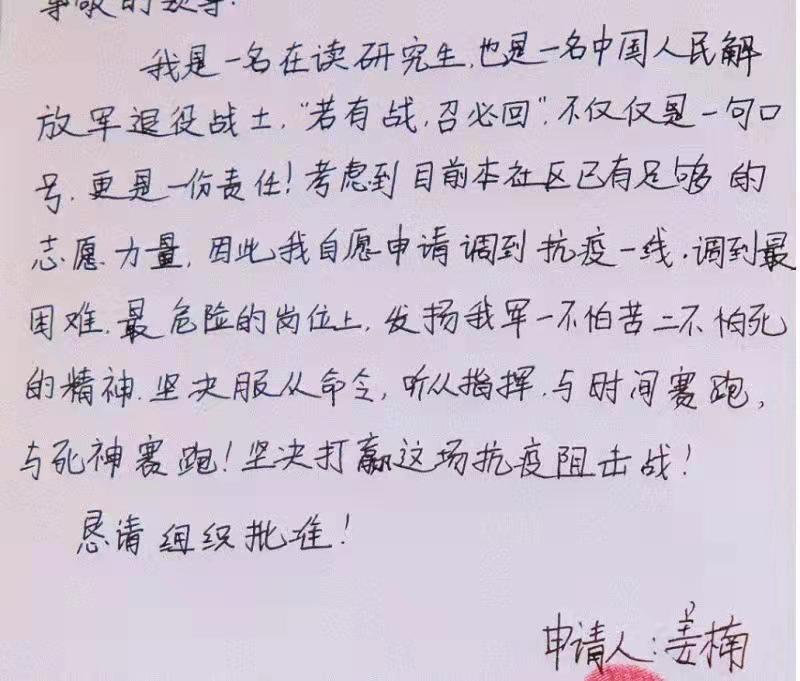 尊敬的领导:
我是一名在读研究生,也是一名中国人民解
放军退役战士,“若有战,召必回”,不仅仅是一句口
号,更是一份责任!考虑到目前本社区已有足够的
志愿力量,因此我自愿申请调到抗疫一线,调到最
困难、最危险的岗位上,发扬我军一不怕苦二不怕死
的精神,坚决服从命令,听从指挥,与时间赛跑,
与死神赛跑!坚决打赢这场抗疫阻击战!
恳请组织批准!
申请人:姜楠